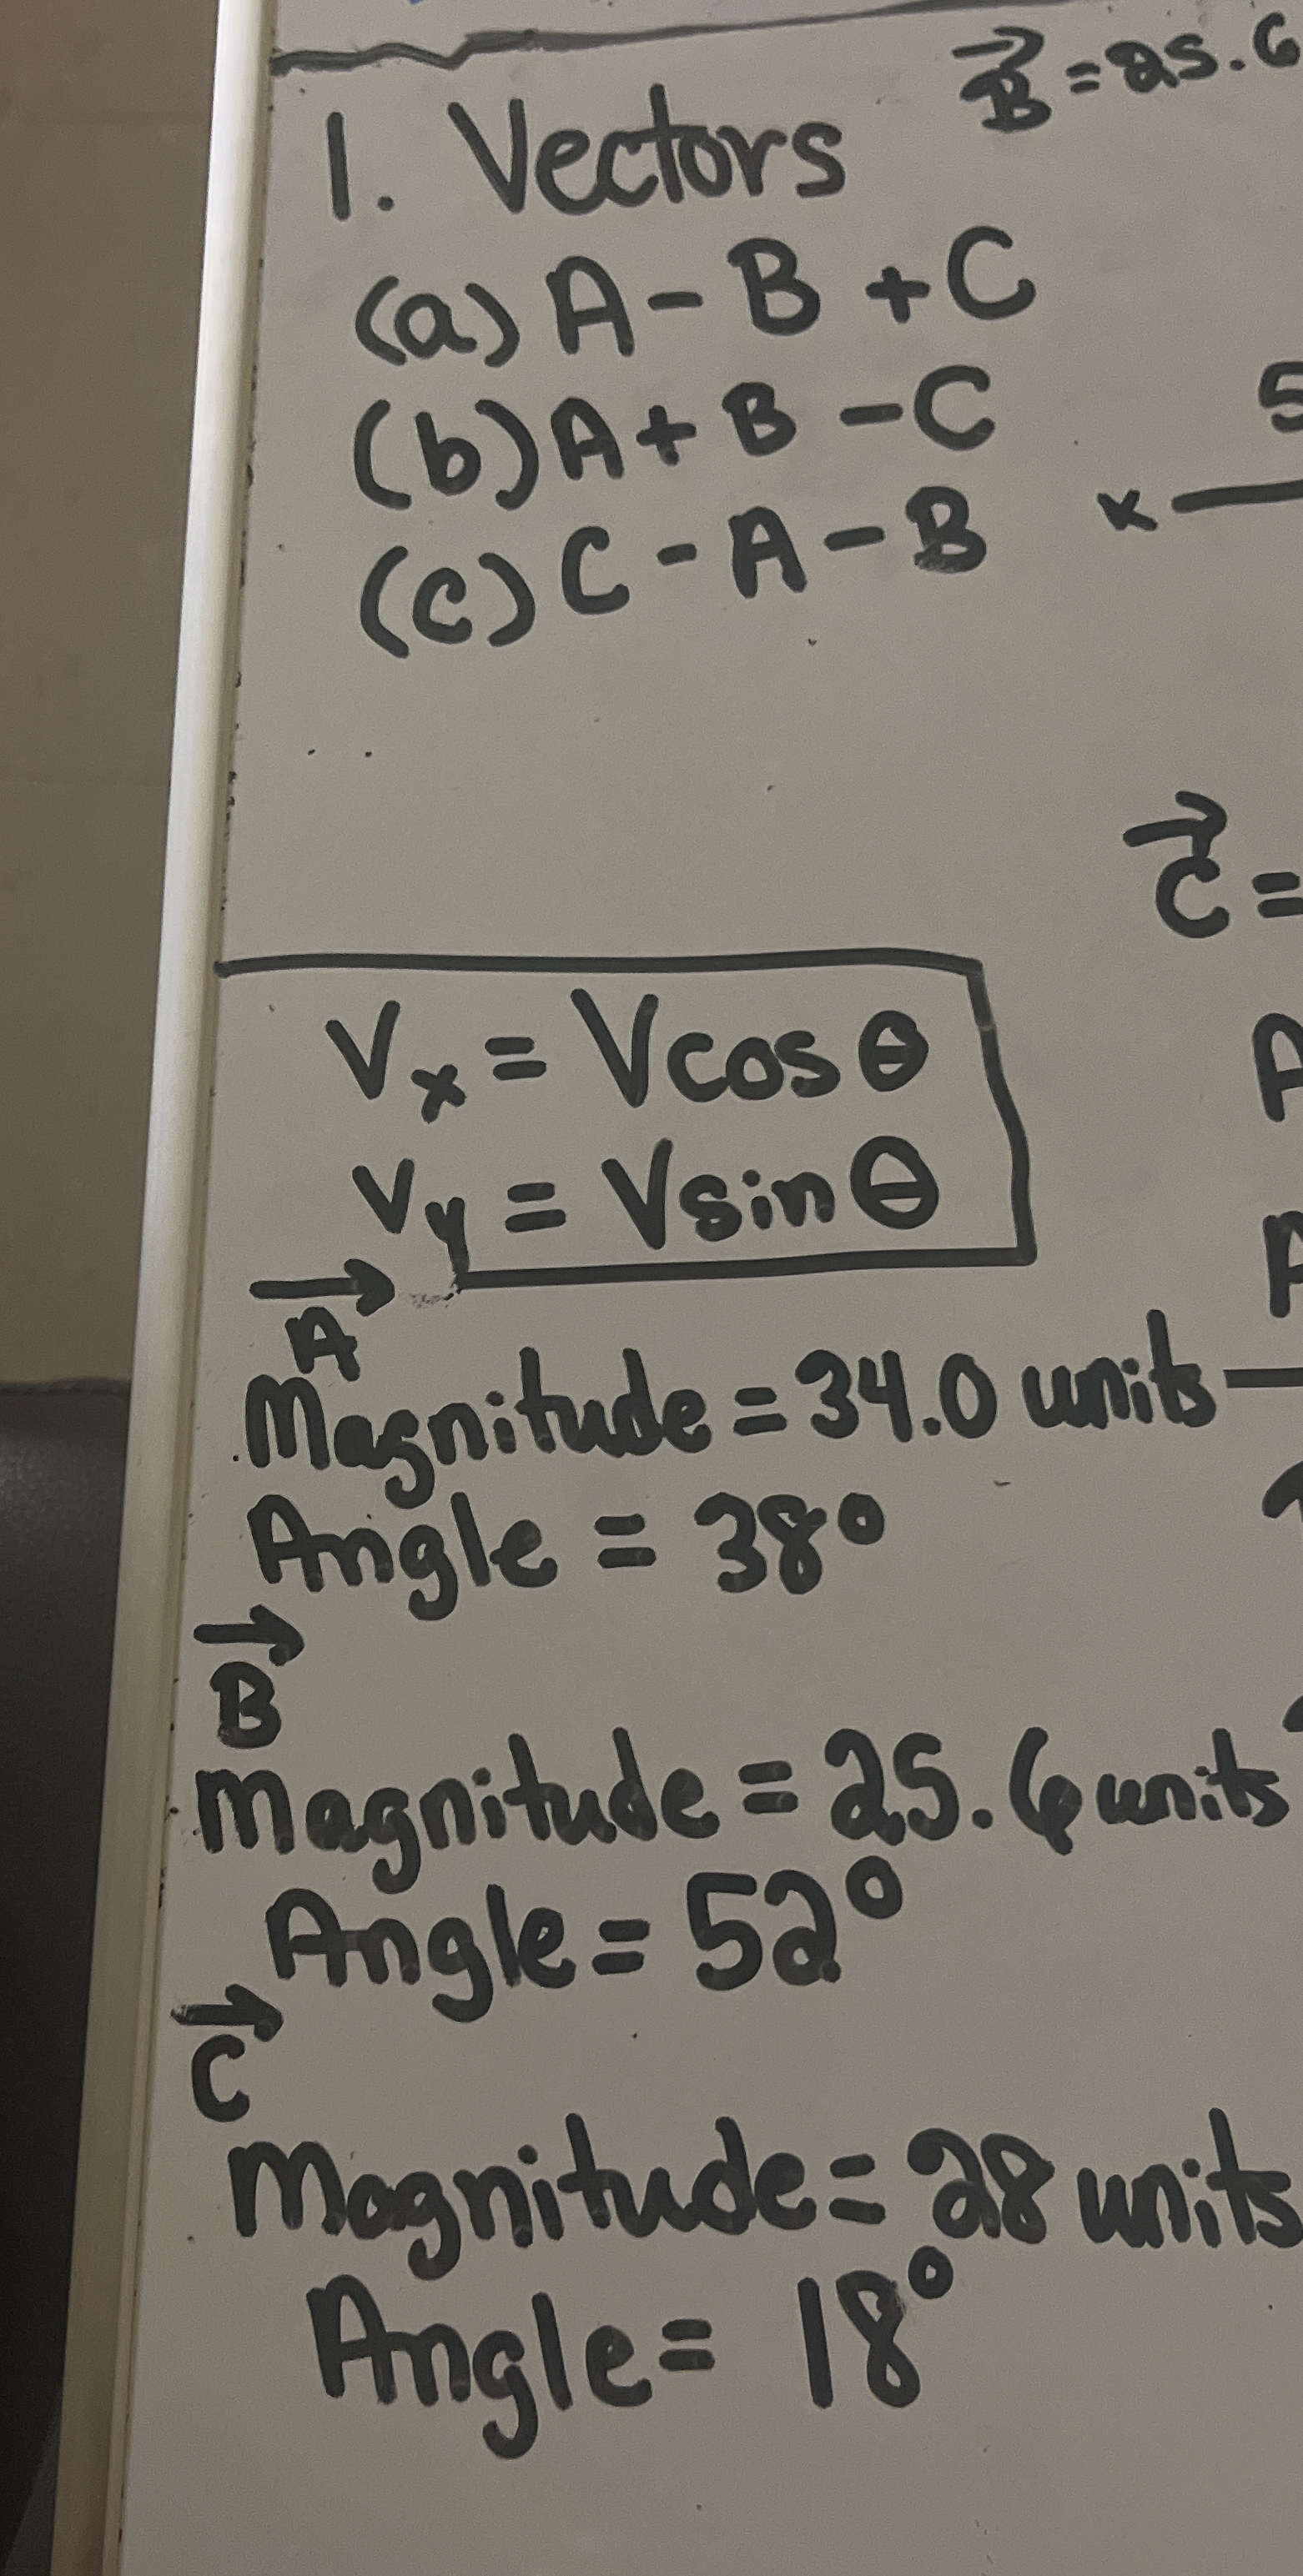 B = 25.6
1. Vectors
(a) A - B + C
(b) A + B - C
(c) C - A - B
5
x
C =
Vx = Vcosθ
Vy = Vsinθ
A
Magnitude = 34.0 units
Angle = 38°
B
Magnitude = 25.6 units
Angle = 52°
C
Magnitude = 28 units
Angle = 18°